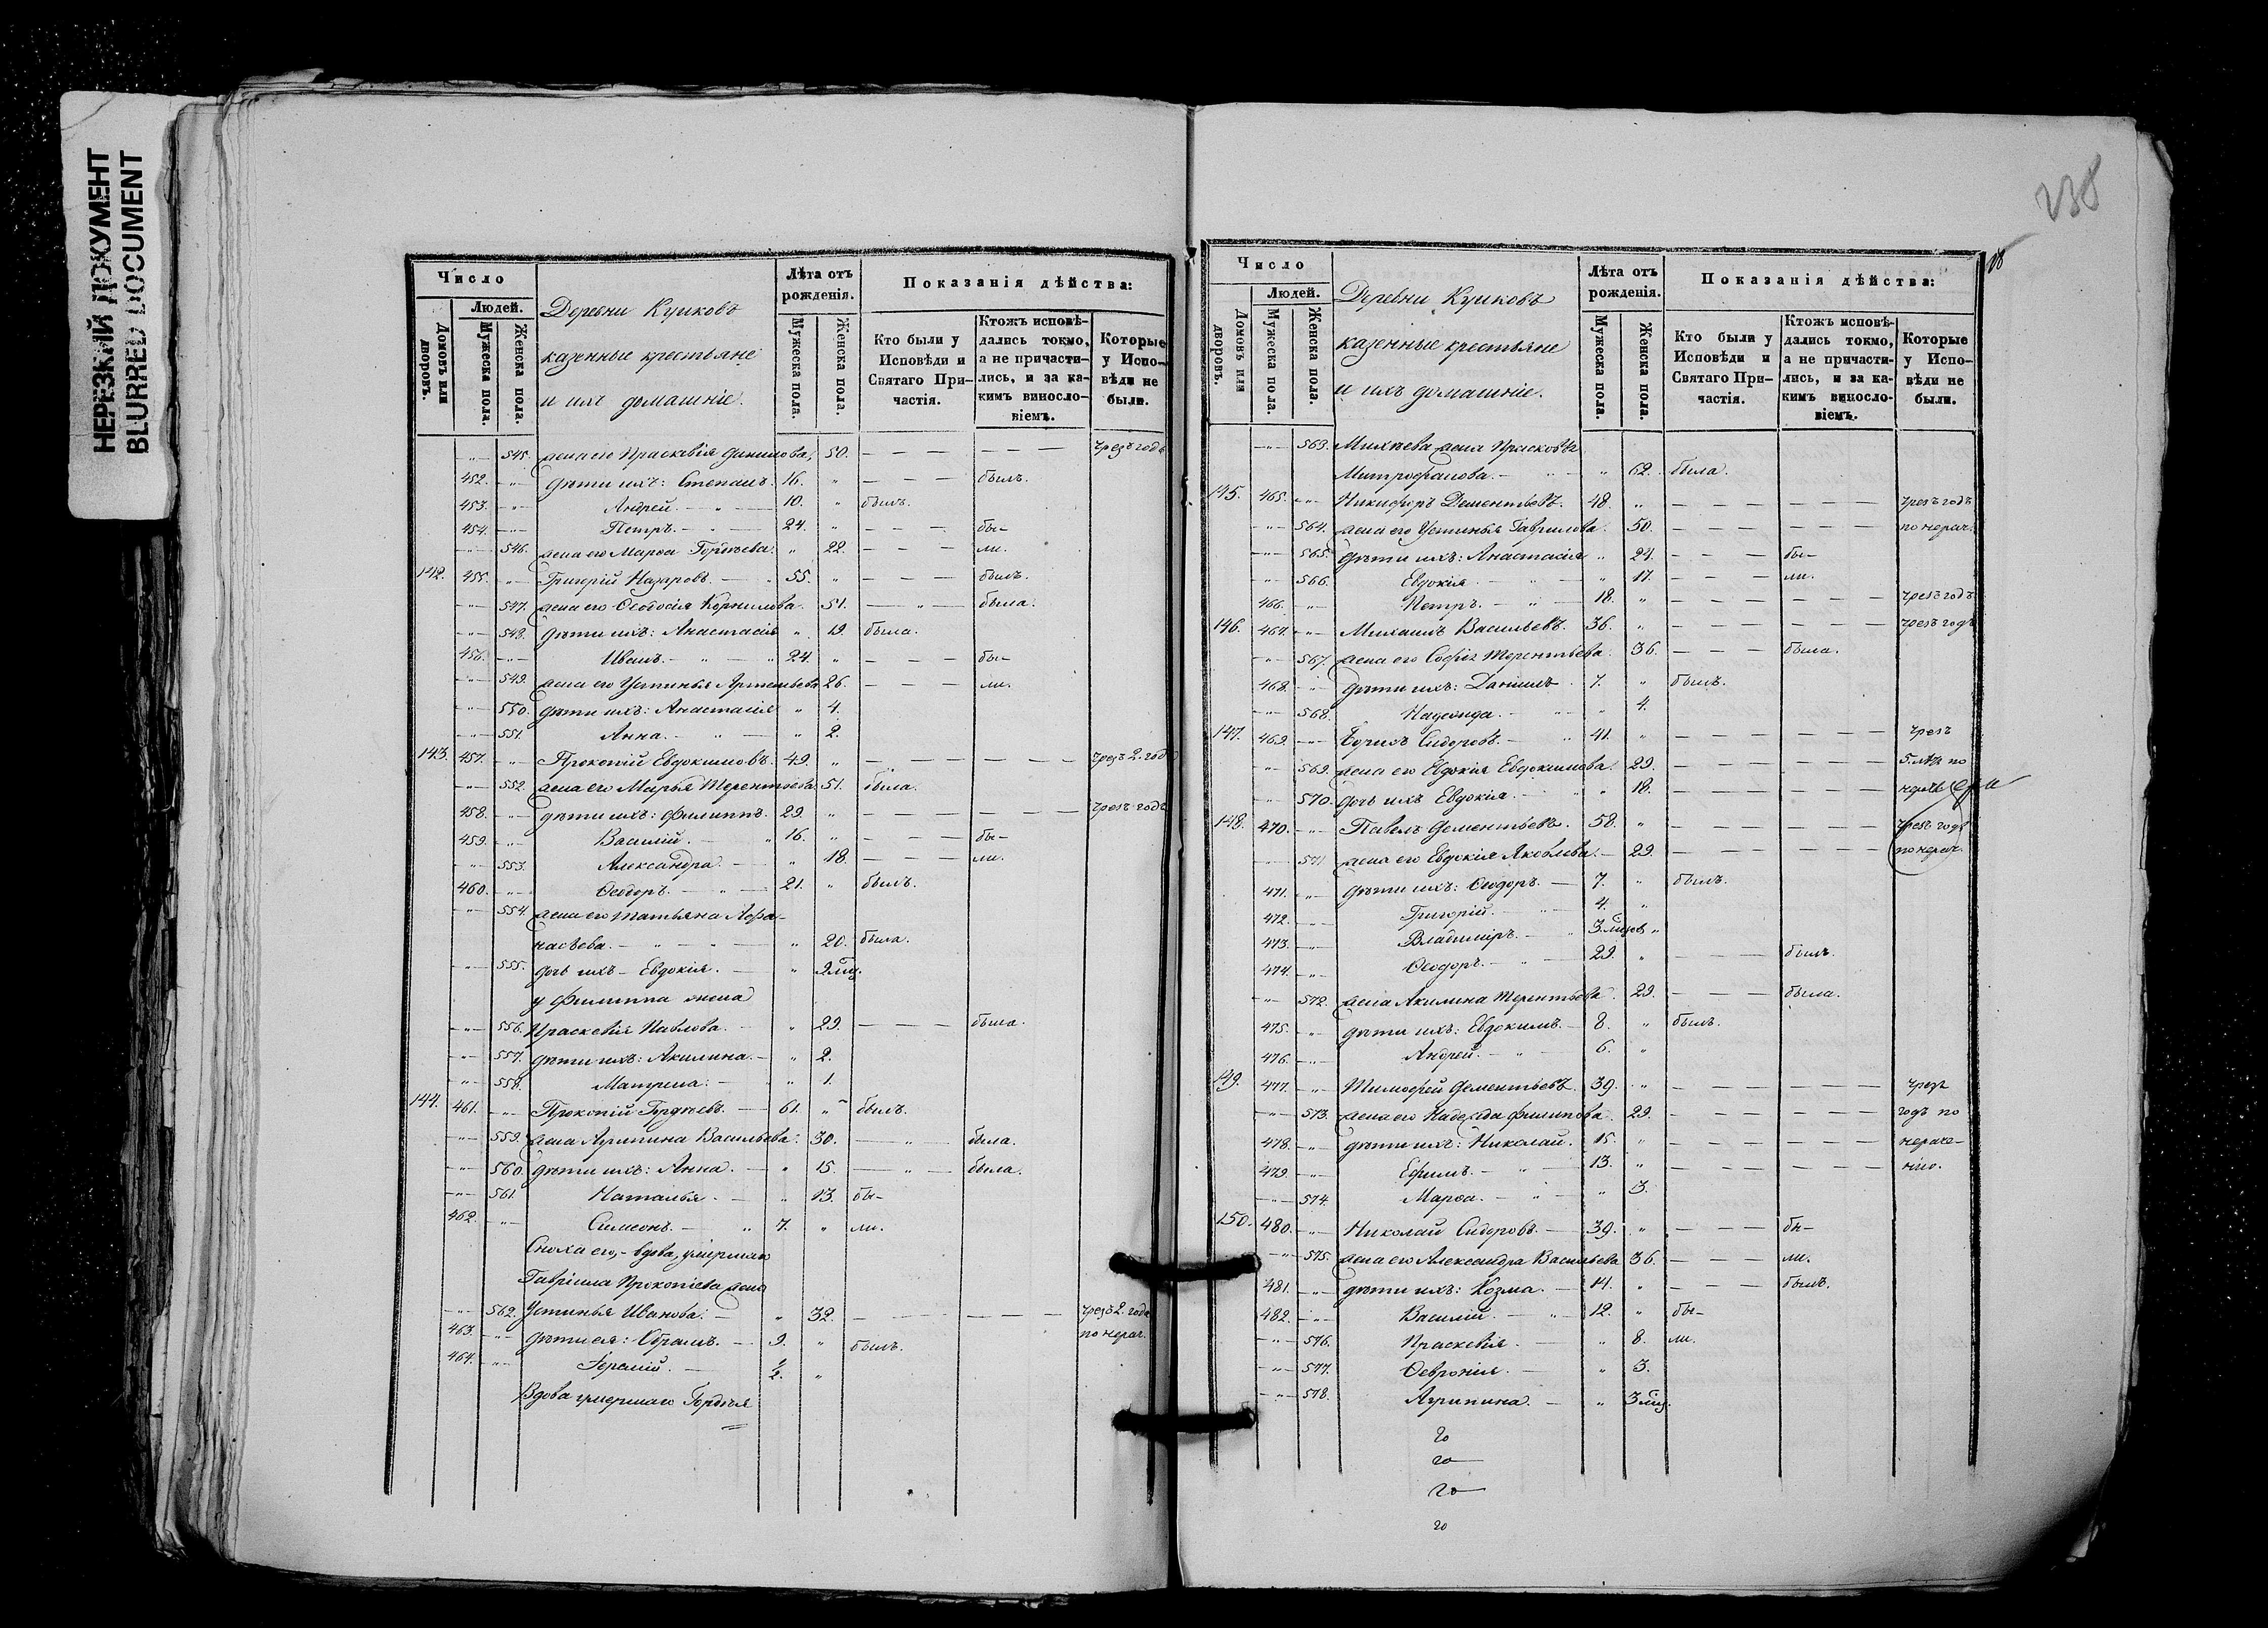 НЕРЕЗКИЙ ДОКУМЕНТ
BLURRED DOCUMENT
Число
Людей.
Домовъ или дворовъ.
Мужеска пола.
Женска пола.
Деревни Кушковъ
казенные крестьяне
и ихъ домашніе.
Лѣта отъ рожденія.
Мужеска пола.
Женска пола.
Показанія дѣйства:
Кто были у Исповѣди и Святаго Причастія.
Ктожъ исповѣдались токмо, а не причастились, и за какимъ винословіемъ.
Которые у Исповѣди не были.
-„- 545. жена его Праскевія Данилова, 50. — — — — — — чрезъ годъ
452. -„- дѣти ихъ: Степанъ. 16. „ — — — былъ.
453. -„- Андрей. — „ — 10. „ былъ.
454. -„- Петръ. — „ — 24. „ — — — бы-
-„- 546. жена его Марѳа Гордѣева. „ 22. — — — ли.
142. 455. -„- Григорій Назаровъ. — „ 55. „ — — — былъ.
-„- 547. жена его Ѳеодосія Корнилова. 51. — „ — была.
-„- 548. дѣти ихъ: Анастасія „ 19. была.
456. -„- Иванъ. — „ — „ 24. „ — — — бы-
-„- 549. жена его Устинья Артемьева 26. — — — ли.
-„- 550. дѣти ихъ: Анастасія „ 4.
-„- 551. Анна. — „ — „ 2.
143. 457. -„- Прокопій Евдокимовъ. 49. „ — — — — — — чрезъ 2. год
-„- 552. жена его Марья Терентьева. 51. была.
458. -„- дѣти ихъ: Филиппъ. 29. „ — — — — — — чрезъ годъ
459. -„- Василій. — „ 16. „ — — — бы-
-„- 553. Александра. — „ 18. — — — ли.
460. -„- Ѳеодоръ. — „ — 21. „ былъ.
-„- 554. жена его Татьяна Афа-
насьева. — „ — „ — „ 20. была.
-„- 555. дочь ихъ - Евдокія. — „ 2 мц.
у Филиппа жена
-„- 556. Праскевія Павлова. — „ 29. — — — была.
-„- 557. дѣти ихъ: Акилина. — „ 2.
-„- 558. Матрена. — „ 1.
144. 461. -„- Прокопій Гордѣевъ. — 61. „ былъ.
-„- 559. жена Агрипина Васильева. 30. — „ — была.
-„- 560. дѣти ихъ: Анна. — „ 15. — „ — была.
-„- 561. Наталья. — „ 13. бы-
462. -„- Симеонъ. — „ 7. „ ли.
Сноха его, - вдова, умершаго
Гавріила Прокопіева жена
-„- 562. Устинья Иванова. — „ 32. — — — — — — чрезъ 2. года
463. -„- дѣти ея: Абрамъ. — 9. „ былъ. по нерач.
464. -„- — ½. „
Вдова умершаго Гордѣя
238
Число
Людей.
Домовъ или дворовъ.
Мужеска пола.
Женска пола.
Деревни Кушковъ
казенные крестьяне
и ихъ домашніе.
Лѣта отъ рожденія.
Мужеска пола.
Женска пола.
Показанія дѣйства:
Кто были у Исповѣди и Святаго Причастія.
Ктожъ исповѣдались токмо, а не причастились, и за какимъ винословіемъ.
Которые у Исповѣди не были.
-„- 563. Михѣева жена Прасковья
Митрофанова. — „ — „ 62. была.
145. 465. -„- Никифоръ Дементьевъ. 48. „ — — — — — — чрезъ годъ
-„- 564. жена его Устинья Гаврилова. 50. — — — — — — по нерач.
-„- 565. дѣти ихъ: Анастасія „ 24. — — — бы-
-„- 566. Евдокія. — „ — „ 17. — — — ли.
466. -„- Петръ. — „ — 18. „ — — — — — — чрезъ годъ
146. 467. -„- Михаилъ Васильевъ. 36. „ — — — — — — чрезъ годъ
-„- 567. жена его Софія Терентьева. 36. — — — была.
468. -„- дѣти ихъ: Даніилъ. 7. „ былъ.
-„- 568. Надежда. — „ — „ 4.
147. 469. -„- Сидоровъ. — „ 41. „ — — — — — — чрезъ
-„- 569. жена его Евдокія Евдокимова. 29. — — — — — — 5. лѣтъ по
-„- 570. дочь ихъ Евдокія. — „ „ 18. — — — — — —
148. 470. -„- Павелъ Дементьевъ. 58. „ — — — — — — чрезъ годъ
-„- 571. жена его Евдокія Яковлева. — 29. — — — — — — по нерач.
471. -„- дѣти ихъ: Ѳеодоръ. — 7. „ былъ.
472. -„- Григорій. — „ — 4. „
473. -„- Владиміръ. — „ 3. „
474. -„- Ѳеодоръ. — „ — 29. „ — — — былъ.
-„- 572. жена Акилина Терентьева. 29. — — — была.
475. -„- дѣти ихъ: Евдокимъ. — 8. „ былъ.
476. -„- Андрей. — „ — 6. „
149. 477. -„- Тимофей Дементьевъ. 39. „ — — — — — — чрезъ
-„- 573. жена его Надежда Филипова. 29. — — — — — — годъ по
478. -„- дѣти ихъ: Николай. 15. „ — — — — — — нераче-
479. -„- Ефимъ. — „ — 13. „ — — — — — — нію.
-„- 574. Марѳа. — „ — „ 3.
150. 480. -„- Николай Сидоровъ. — 39. „ — — — бы-
-„- 575. жена его Александра Васильева 36. — — — ли.
481. -„- дѣти ихъ: Козма. — 14. „ — — — былъ.
482. -„- Василій. — „ 12. „ бы-
-„- 576. Праскевія. — „ 8. ли.
-„- 577. Ѳевронія. — „ 3.
-„- 578. Агрипина. — „ 3 мц.
20
20
20
20